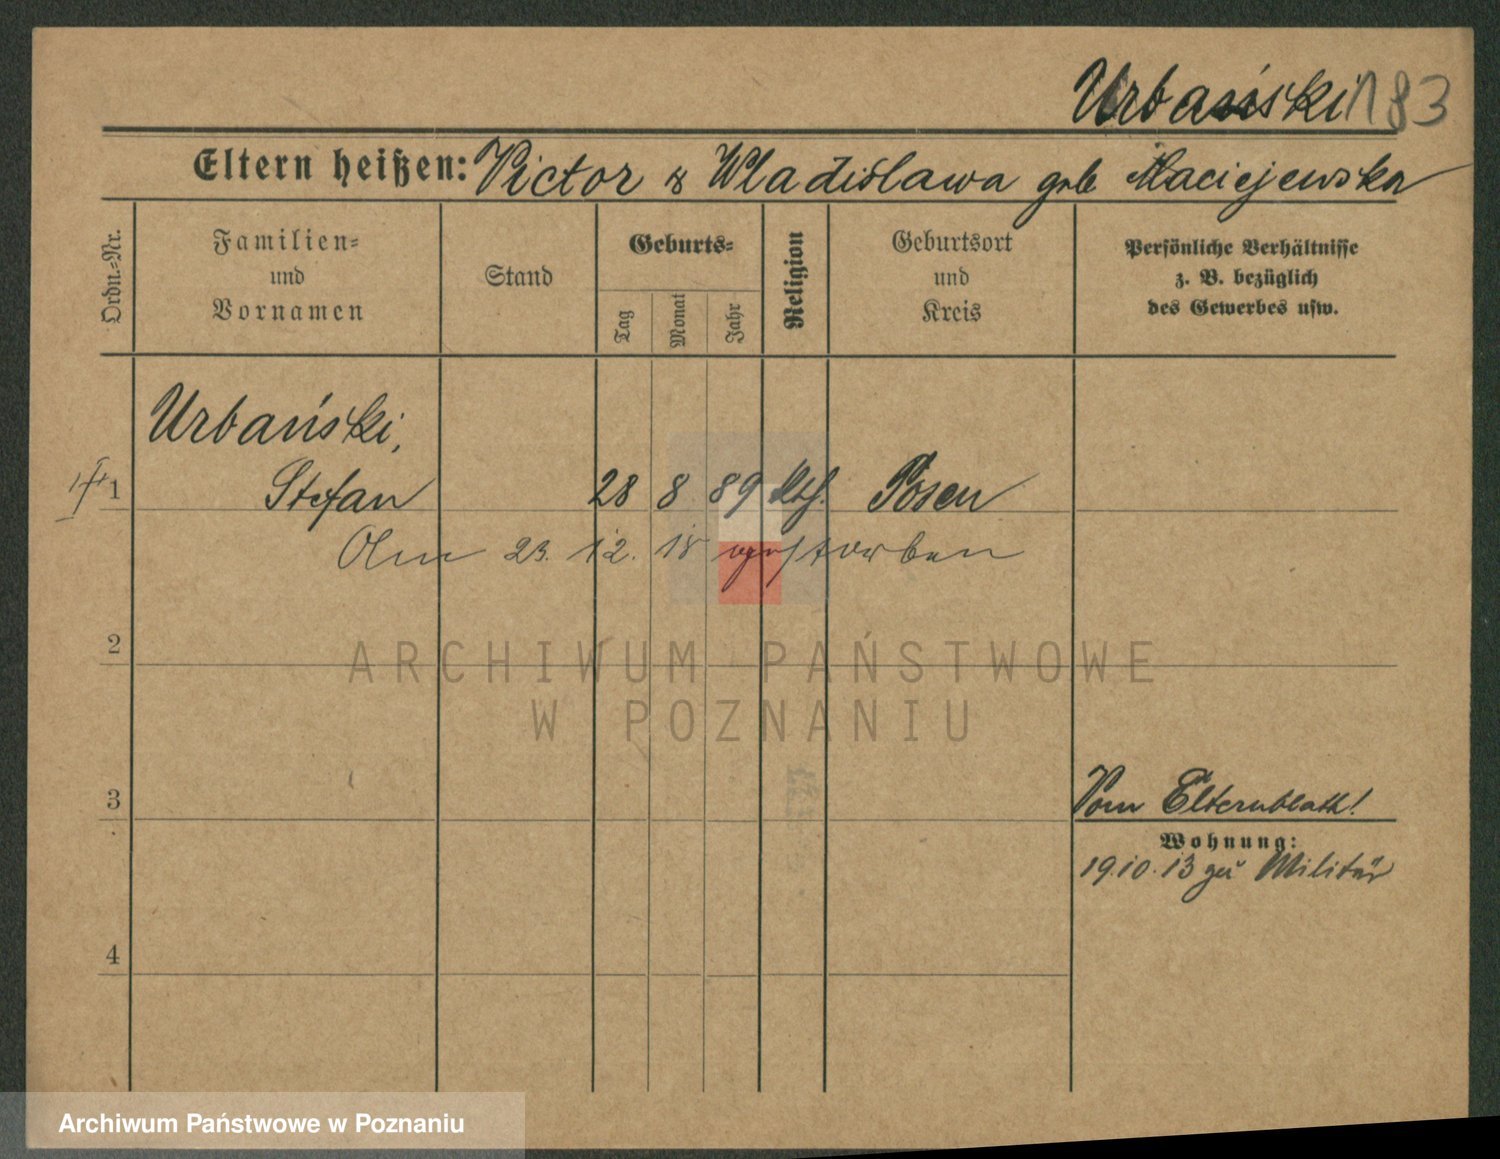 Urbański 183
Eltern heißen: Victor & Wladislawa geb Maciejewska
Ordn.-Nr.
Familien-
und
Vornamen
Stand
Geburts-
Tag
Monat
Jahr
Religion
Geburtsort
und
Kreis
Persönliche Verhältnisse
z. B. bezüglich
des Gewerbes usw.
Urbański,
1 Stefan 28 8 89 kth. Posen
Am 23. 12. 18 verstorben
2
ARCHIWUM PAŃSTWOWE
W POZNANIU
3
Vom Elternblatt!
Wohnung:
19.10.13 zu Militär
4
Archiwum Państwowe w Poznaniu